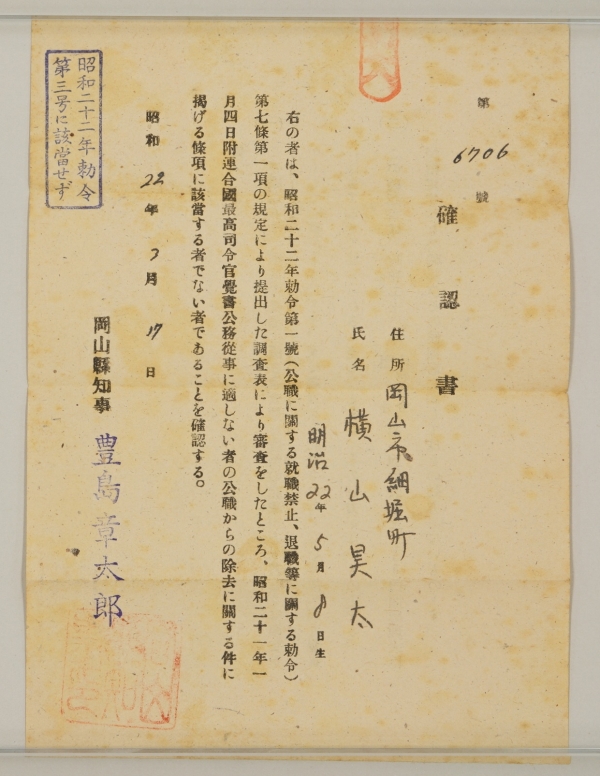 第 6706 號
確認書
住所 岡山市細堀町
氏名 横山昊太
明治22年5月8日生
右の者は、昭和二十二年勅令第一號(公職に關する就職禁止、退職等に關する勅令)
第七條第一項の規定により提出した調査表により審査をしたところ、昭和二十一年一
月四日附連合國最高司令官覺書公務從事に適しない者の公職からの除去に關する件に
揭げる條項に該當する者でない者であることを確認する。
昭和22年 月17日
岡山縣知事 豊島章太郎
昭和二十二年勅令
第三号に該當せず